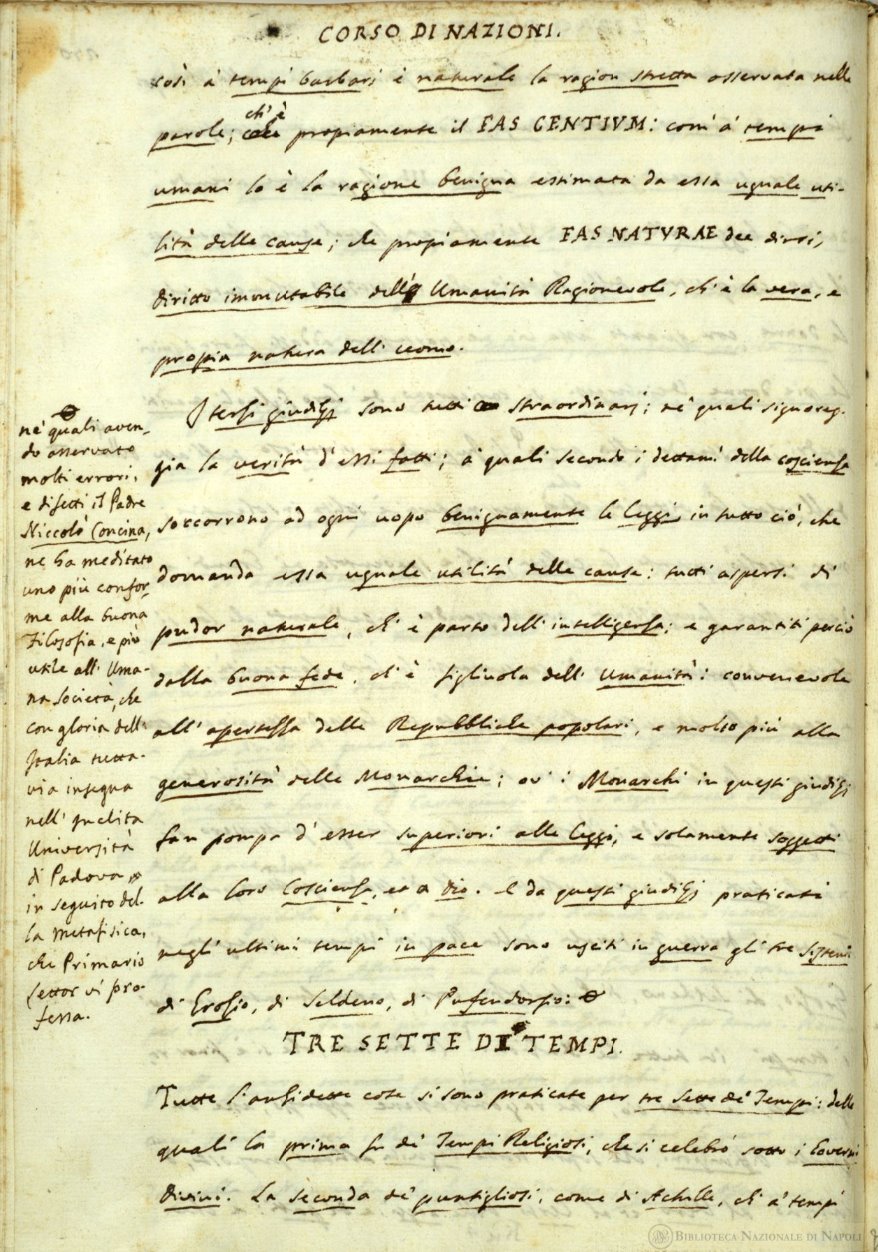 CORSO DI NAZIONI.
così a' tempi barbari è naturale la ragion stretta osservata nelle
parole; ch'è propiamente il FAS GENTIVM: com' a' tempi
umani lo è la ragione benigna estimata da essa uguale uti-
lità delle cause; che propiamente FAS NATVRAE dee dirsi,
diritto immutabile dell' Umanità Ragionevole, ch' è la vera, e
propia natura dell' uomo.
I terzi giudizj sono tutti straordinarj; ne' quali signoreg-
gia la verità d' essi fatti; a' quali secondo i dettami della coscienza
soccorrono ad ogni uopo benignamente le leggi in tutto ciò, che
domanda essa uguale utilità delle cause: tutti aspersi di
pudor naturale, ch' è parto dell' intelligenza; e garantiti perciò
dalla buona fede, ch' è figliuola dell' Umanità: convenevole
all' apertezza delle Repubbliche popolari, e molto più alla
generosità delle Monarchie; ov' i Monarchi in questi giudizj
fan pompa d' esser superiori alle leggi, e solamente soggetti
alla loro Coscienza, et a Dio. E da questi giudizj praticati
negli ultimi tempi in pace sono usciti in guerra gli tre sistemi
di Grozio, di Seldeno, di Pufendorfio:
ne' quali aven-
do osservato
molti errori,
e difetti il Padre
Niccolò Concina,
ne ha meditato
uno più confor-
me alla buona
Filosofia, e più
utile all' Uma-
na Società, che
con gloria dell'
Italia tutta-
via insegna
nell' inclita
Università
di Padova
in seguito del-
la metafisica,
che Primario
Lettor vi pro-
fessa.
TRE SETTE DI TEMPI.
Tutte l' anzidette cose si sono praticate per tre Sette de' Tempi: delle
quali la prima fu de' Tempi Religiosi, che si celebrò sotto i Governi
divini. La seconda de' puntigliosi, come di Achille, ch' a' tempi
BIBLIOTECA NAZIONALE DI NAPOLI